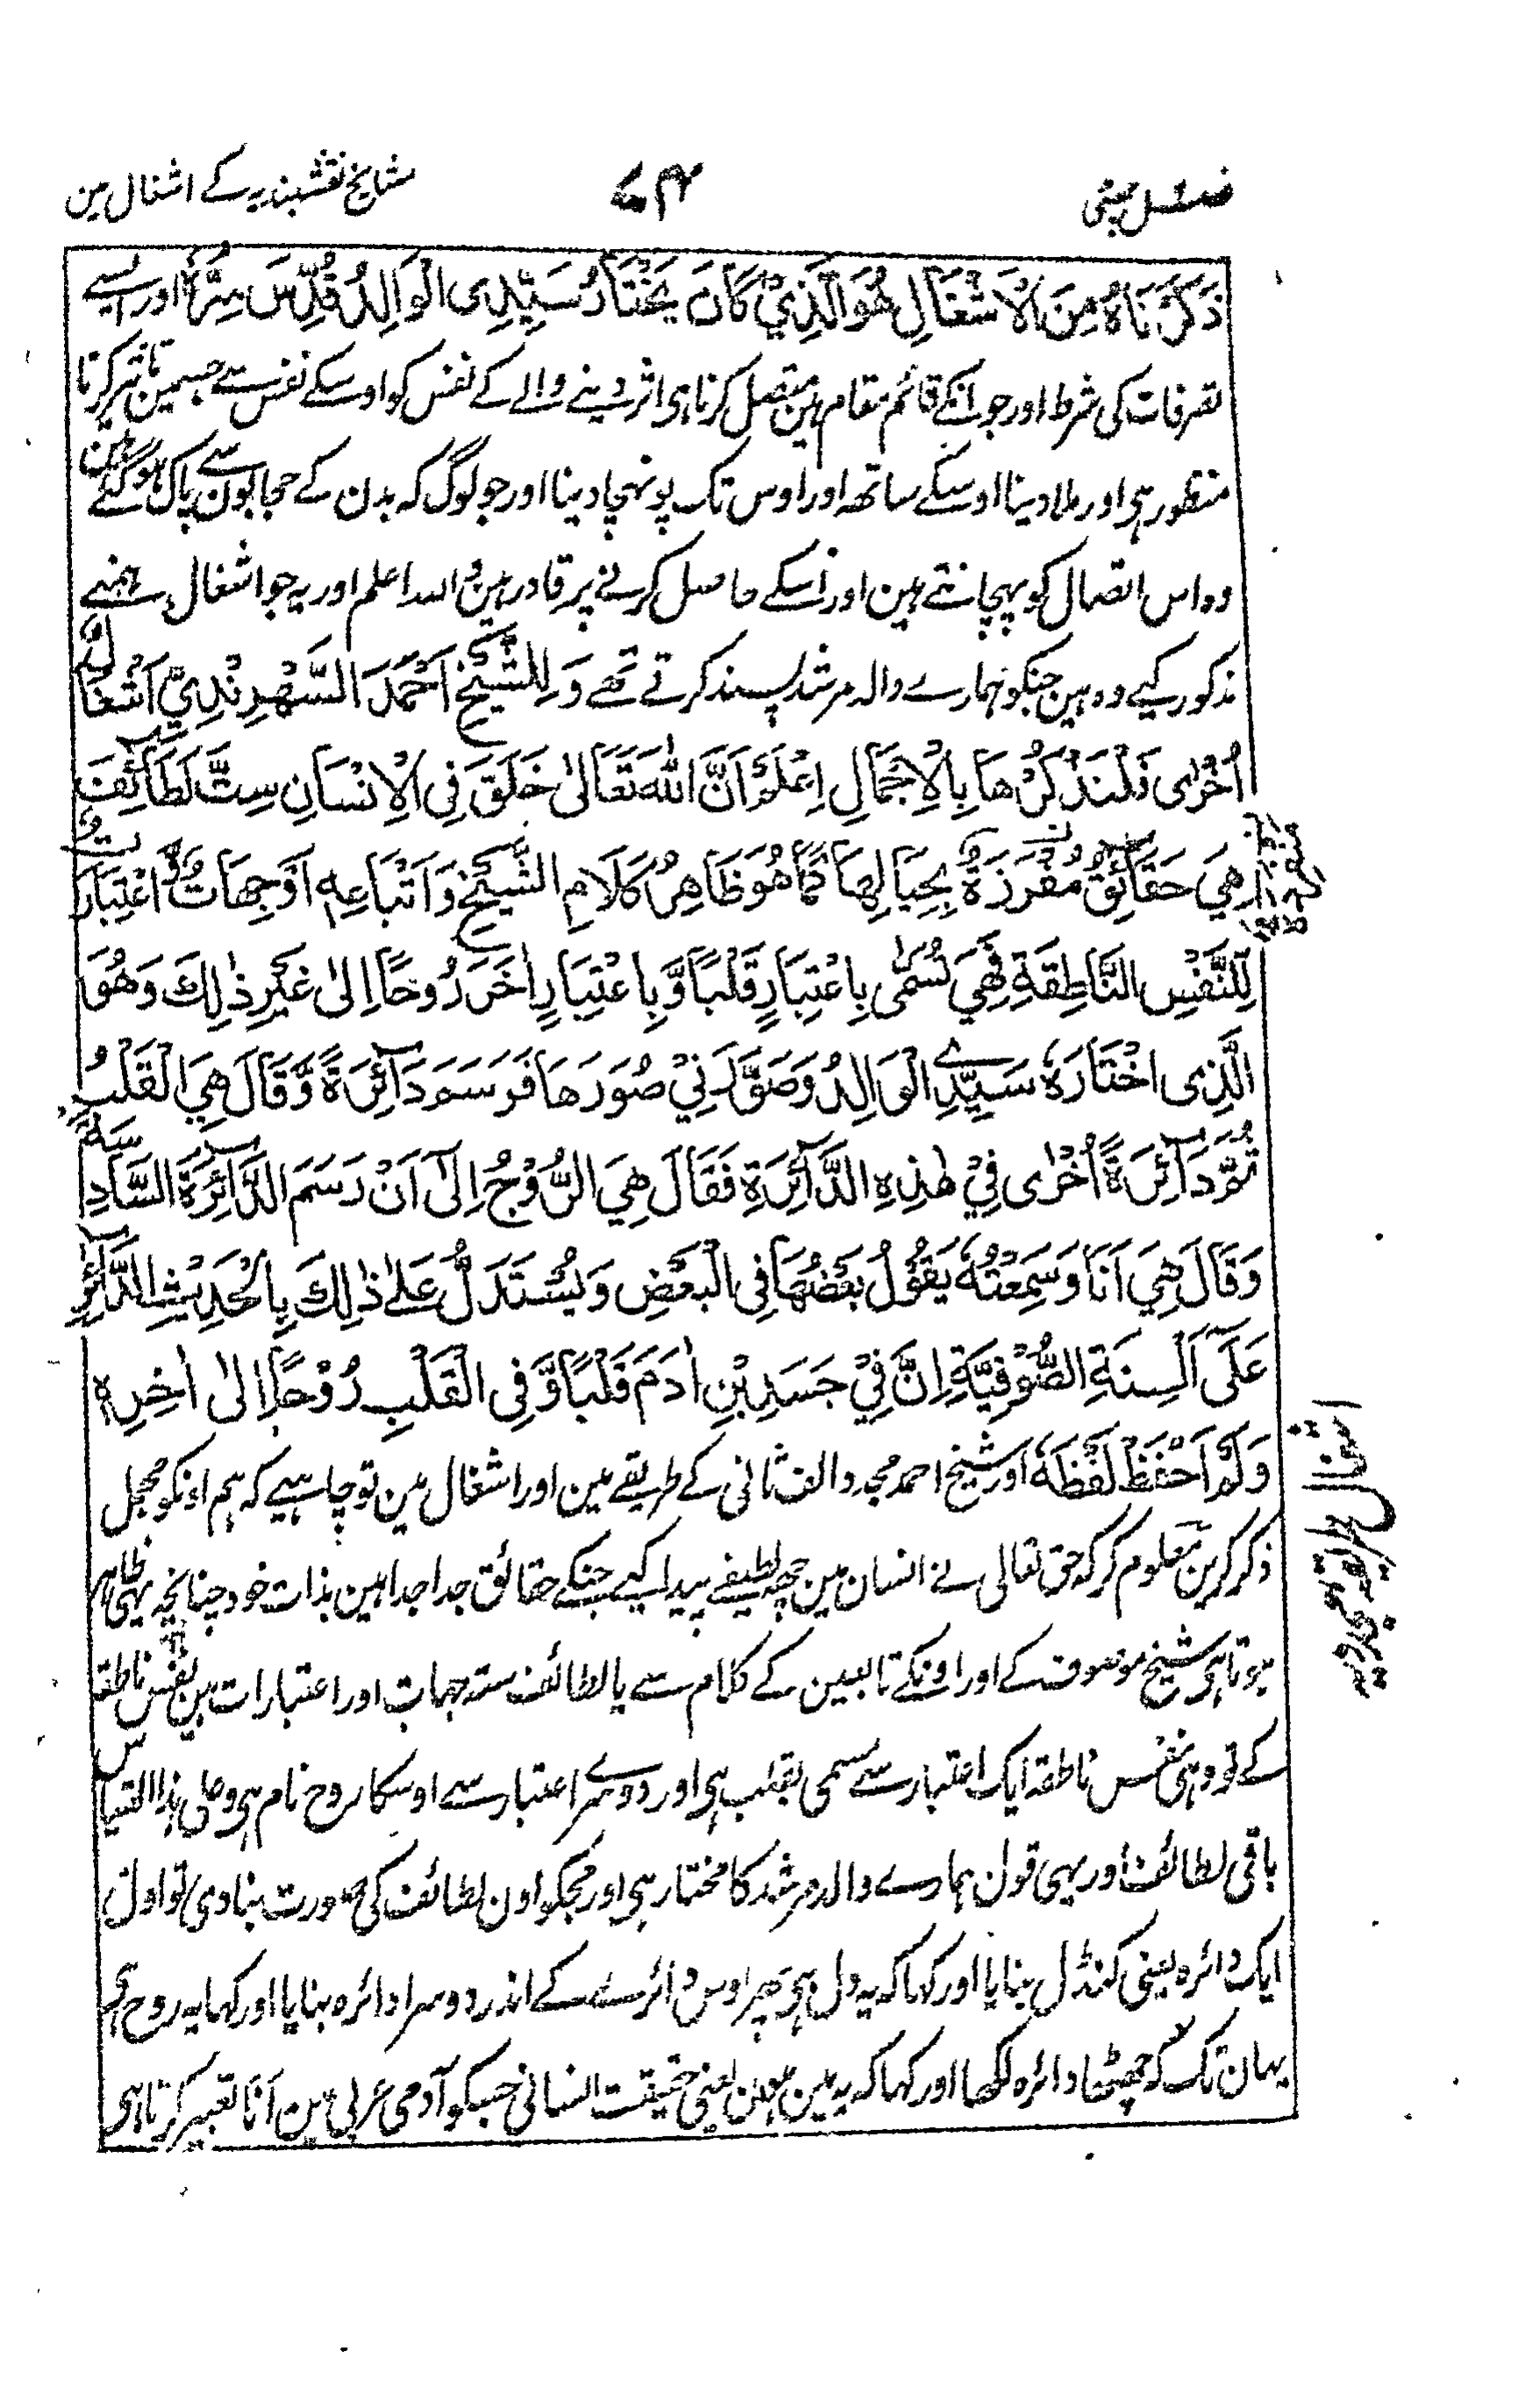 فصل چھٹی
۷۴
مشایخ نقشبندیہ کے اشغال مین
ذَكَرْنَاهُ مِنَ الْاَشْغَالِ هُوَ الَّذِيْ كَانَ يَخْتَارُ سَيِّدِى الْوَالِدُ قُدِّسَ سِرُّهٗ اور ایسے
تصرفات کی شرط اور جو انکے قائم مقام ہین متصل کرنا ہی اثر دینے والے کے نفس کو اوسکے نفس سے جسمین تاثیر کرنا
منظور ہی اور ملا دینا اوسکے ساتھ اور اوس تک پونہچا دینا اور جو لوگ کہ بدن کے حجابون سے پاک ہو گئے ہین
وہ اس اتصال کو پہچانتے ہین اور اُسکے حاصل کرنے پر قادر ہین واللہ اعلم اور یہ جو اشغال ہمنے
مذکور کیے وہ ہین جنکو ہمارے والد مرشد پسند کرتے تھے وَلِلشَّيْخِ اَحْمَدَ السَّهْرِنْدِيِّ اَشْغَالٌ
اُخْرٰى فَلْنَذْكُرْهَا بِالْاِجْمَالِ اِعْلَمْ اَنَّ اللّٰهَ تَعَالٰى خَلَقَ فِى الْاِنْسَانِ سِتَّ لَطَآئِفَ
هِيَ حَقَآئِقُ مُفْرَزَةٌ بِحِيَالِهَا كَمَا هُوَ ظَاهِرُ كَلَامِ الشَّيْخِ وَاَتْبَاعِهٖ اَوْ جِهَاتٌ وَّ اعْتِبَارَاتٌ
لِّلنَّفْسِ النَّاطِقَةِ فَهِيَ تُسَمّٰى بِاعْتِبَارٍ قَلْبًا وَّبِاعْتِبَارٍ اٰخَرَ رُوْحًا اِلٰى غَيْرِ ذٰلِكَ وَهُوَ
الَّذِى اخْتَارَهٗ سَيِّدِے الْوَالِدُ وَصَوَّرَ لِيْ صُوَرَهَا فَرَسَمَ دَآئِرَةً وَّقَالَ هِيَ الْقَلْبُ
ثُمَّ دَآئِرَةً اُخْرٰى فِيْ هٰذِهِ الدَّآئِرَةِ فَقَالَ هِيَ الرُّوْحُ اِلٰٓى اَنْ رَسَمَ الدَّآئِرَةَ السَّادِسَةَ
وَقَالَ هِيَ اَنَا وَسَمِعْتُهٗ يَقُوْلُ بَعْضُهَا فِى الْبَعْضِ وَيُسْتَدَلُّ عَلٰى ذٰلِكَ بِالْحَدِيْثِ الدَّآئِرِ
عَلٰٓى اَلْسِنَةِ الصُّوْفِيَّةِ اِنَّ فِيْ جَسَدِ بْنِ اٰدَمَ قَلْبًا وَّفِى الْقَلْبِ رُوْحًا اِلٰى اٰخِرِهٖ
وَلَمْ اَحْفَظْ لَفْظَهٗ اور شیخ احمد مجدد الف ثانی کے طریقے مین اور اشغال مین تو چاہیے کہ ہم اونکو مجمل
ذکر کرین معلوم کر کہ حق تعالی نے انسان مین چھ لطیفے پیدا کیے جنکے حقائق جدا جدا ہین بذات خود چنانچہ یہی ظاہر
ہوتا ہی شیخ موصوف کے اور اونکے تابعین کے کلام سے یا لطائف ستہ جہات اور اعتبارات ہین نفس ناطقہ
کے تو وہی نفس ناطقہ ایک اعتبار سے مسمی بقلب ہی اور دوسرے اعتبار سے اوسکا روح نام ہی وعلی ہذا القیاس
باقی لطائف اور یہی قول ہمارے والد مرشد کا مختار ہی اور مجکو اون لطائف کی صورت بنا دی تو اول
ایک دائرہ یعنی کنڈل بنایا اور کہا کہ یہ دل ہی پھر اوس دائرے کے اندر دوسرا دائرہ بنایا اور کہا یہ روح ہی
یہان تک کہ چھٹھا دائرہ لکھا اور کہا کہ یہ مین ہون یعنی حقیقت انسانی جسکو آدمی عربی مین اَنَا تعبیر کرتا ہی
اشغال طریقہ مجددیہ